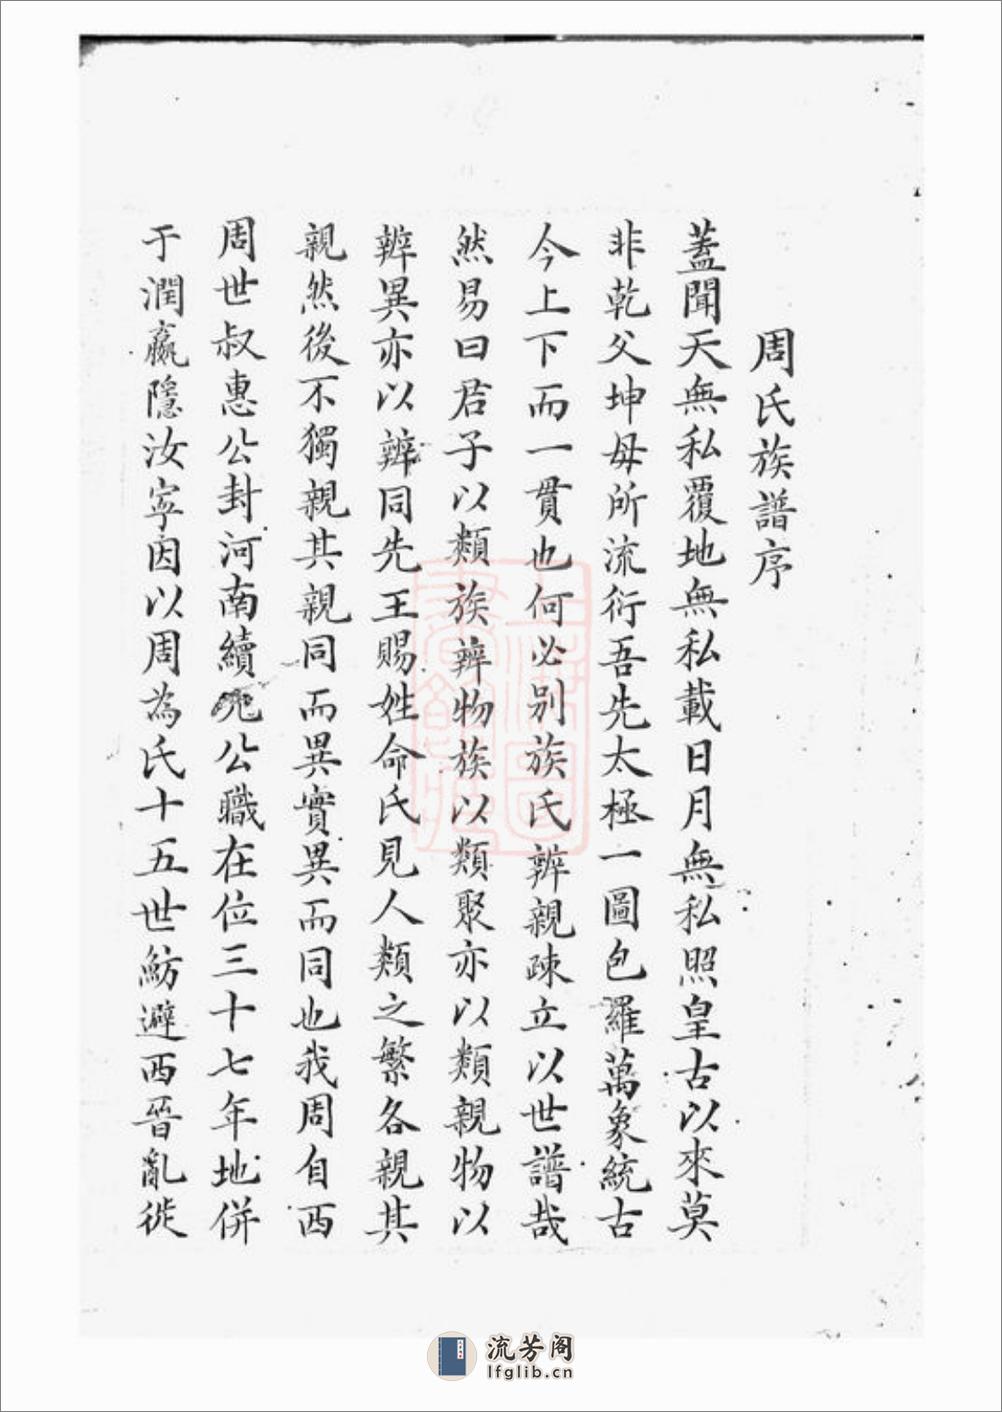 周氏族譜序
蓋聞天無私覆地無私載日月無私照皇古以來莫
非乾父坤母所流衍吾先太極一圖包羅萬象統古
今上下而一貫也何必别族氏辨親疎立以世譜哉
然易曰君子以類族辨物族以類聚亦以類親物以
辨異亦以辨同先王賜姓命氏見人類之繁各親其
親然後不獨親其親同而異實異而同也我周自西
周世叔惠公封河南續公職在位三十七年地併
于潤嬴隱汝寧因以周為氏十五世魴避西晉亂徙
流芳阁
lfglib.cn